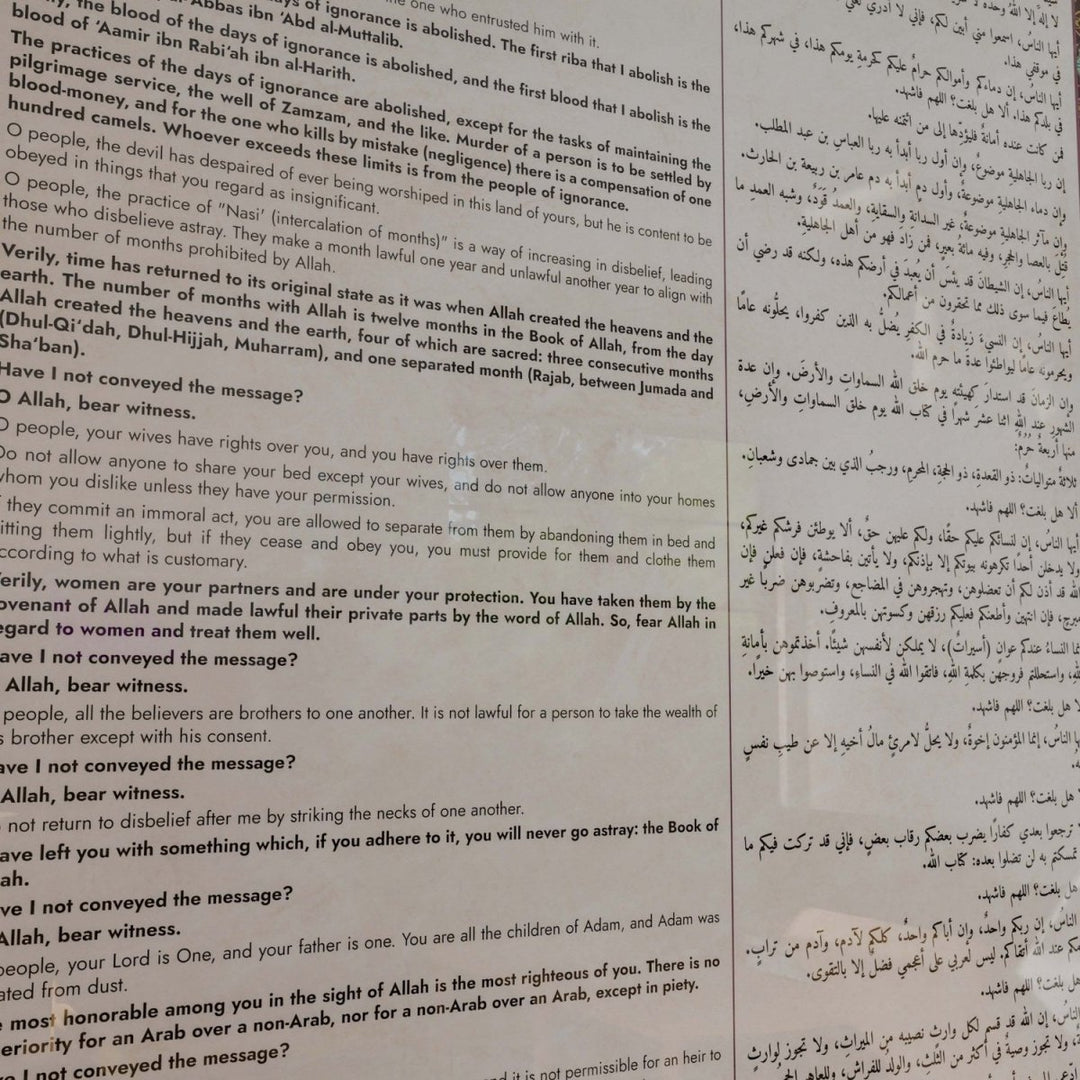 the one who entrusted him with it.
days of ignorance is abolished. The first riba that I abolish is the
Abbas ibn ‘Abd al-Muttalib.
the blood of the days of ignorance is abolished, and the first blood that I abolish is the
blood of ‘Aamir ibn Rabi‘ah ibn al-Harith.
The practices of the days of ignorance are abolished, except for the tasks of maintaining the
pilgrimage service, the well of Zamzam, and the like. Murder of a person is to be settled by
blood-money, and for the one who kills by mistake (negligence) there is a compensation of one
hundred camels. Whoever exceeds these limits is from the people of ignorance.
O people, the devil has despaired of ever being worshiped in this land of yours, but he is content to be
obeyed in things that you regard as insignificant.
O people, the practice of "Nasi' (intercalation of months)" is a way of increasing in disbelief, leading
those who disbelieve astray. They make a month lawful one year and unlawful another year to align with
the number of months prohibited by Allah.
Verily, time has returned to its original state as it was when Allah created the heavens and the
earth. The number of months with Allah is twelve months in the Book of Allah, from the day
Allah created the heavens and the earth, four of which are sacred: three consecutive months
(Dhul-Qi‘dah, Dhul-Hijjah, Muharram), and one separated month (Rajab, between Jumada and
Sha‘ban).
Have I not conveyed the message?
O Allah, bear witness.
O people, your wives have rights over you, and you have rights over them.
Do not allow anyone to share your bed except your wives, and do not allow anyone into your homes
whom you dislike unless they have your permission.
they commit an immoral act, you are allowed to separate from them by abandoning them in bed and
itting them lightly, but if they cease and obey you, you must provide for them and clothe them
ccording to what is customary.
Verily, women are your partners and are under your protection. You have taken them by the
ovenant of Allah and made lawful their private parts by the word of Allah. So, fear Allah in
egard to women and treat them well.
ave I not conveyed the message?
Allah, bear witness.
people, all the believers are brothers to one another. It is not lawful for a person to take the wealth of
s brother except with his consent.
ave I not conveyed the message?
Allah, bear witness.
not return to disbelief after me by striking the necks of one another.
ave left you with something which, if you adhere to it, you will never go astray: the Book of
ah.
ve I not conveyed the message?
Allah, bear witness.
people, your Lord is One, and your father is one. You are all the children of Adam, and Adam was
ated from dust.
most honorable among you in the sight of Allah is the most righteous of you. There is no
eriority for an Arab over a non-Arab, nor for a non-Arab over an Arab, except in piety.
I not conveyed the message?
it is not permissible for an heir to
لا إله إلا اللهُ وحده لا
أيها الناسُ، اسمعوا مني أبين لكم، فإني لا أدري لعلي
في موقفي هذا.
أيها الناسُ، إن دماءكم وأموالكم حرامٌ عليكم كحرمةِ يومكم هذا، في شهركم هذا،
في بلدكم هذا. ألا هل بلغت؟ اللهم فاشهد.
فمن كانت عنده أمانةٌ فليؤدِّها إلى من ائتمنه عليها.
إن ربا الجاهليةِ موضوعٌ، وإن أول ربا أبدأ به ربا العباسِ بن عبد المطلب.
وإن دماء الجاهليةِ موضوعةٌ، وأول دمٍ أبدأ به دم عامر بن ربيعة بن الحارث.
وإن مآثر الجاهليةِ موضوعةٌ، غير السدانةِ والسقاية، والعمدُ قَوَدٌ، وشبه العمدِ ما
قُتِلَ بالعصا والحجرِ، وفيه مائةُ بعيرٍ، فمن زاد فهو من أهل الجاهلية.
أيها الناسُ، إن الشيطانَ قد يئسَ أن يُعبدَ في أرضكم هذه، ولكنه قد رضي أن
يُطاعَ فيما سوى ذلك مما تحقرون من أعمالكم.
أيها الناسُ، إن النسيءَ زيادةٌ في الكفرِ يُضلُّ به الذين كفروا، يحلُّونه عامًا
ويحرمونه عامًا ليواطئوا عدةَ ما حرم الله.
وإن الزمانَ قد استدارَ كهيئتِه يوم خلق الله السماواتِ والأرضَ. وإن عدة
الشهورِ عند اللهِ اثنا عشرَ شهرًا في كتاب الله يوم خلق السماواتِ والأرضِ،
منها أربعةٌ حُرُمٌ:
ثلاثةٌ متوالياتٌ: ذو القعدةِ، ذو الحجةِ، المحرمِ، ورجبُ الذي بين جمادى وشعبانَ.
ألا هل بلغت؟ اللهم فاشهد.
أيها الناسُ، إن لنسائكم عليكم حقًا، ولكم عليهن حقٌ، ألا يوطئن فرشكم غيركم،
ولا يدخلن أحدًا تكرهونه بيوتكم إلا بإذنكم، ولا يأتين بفاحشةٍ، فإن فعلن فإن
الله قد أذن لكم أن تعضلوهن، وتهجروهن في المضاجع، وتضربوهن ضربًا غير
مبرحٍ، فإن انتهين وأطعنكم فعليكم رزقهن وكسوتهن بالمعروفِ.
نما النساءُ عندكم عوانٍ (أسيراتٌ)، لا يملكن لأنفسهن شيئًا. أخذتموهن بأمانةِ
للهِ، واستحللتم فروجهن بكلمةِ اللهِ، فاتقوا الله في النساءِ، واستوصوا بهن خيرًا.
لا هل بلغت؟ اللهم فاشهد.
ها الناسُ، إنما المؤمنون إخوةٌ، ولا يحلُّ لامرئٍ مالُ أخيهِ إلا عن طيبِ نفسٍ
هل بلغت؟ اللهم فاشهد.
ترجعوا بعدي كفارًا يضرب بعضكم رقاب بعضٍ، فإني قد تركت فيكم ما
تمسكتم به لن تضلوا بعده: كتاب الله.
هل بلغت؟ اللهم فاشهد.
الناسُ، إن ربكم واحدٌ، وإن أباكم واحدٌ، كلكم لآدم، وآدم من ترابٍ.
كم عند الله أتقاكم. ليس لعربي على أعجمي فضلٌ إلا بالتقوى.
هل بلغت؟ اللهم فاشهد.
الناسُ، إن الله قد قسم لكل وارثٍ نصيبه من الميراثِ، ولا تجوز لوارثٍ
ولا تجوز وصيةٌ في أكثر من الثلثِ، والولدُ للفراشِ، وللعاهرِ